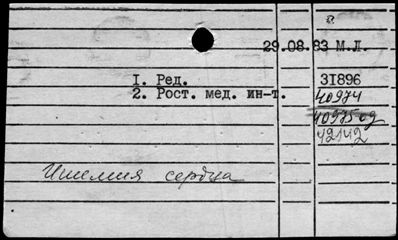 29.08.83 М.Л.
1. Ред. 31896
2. Рост. мед. ин-т. 40974
40975 од
42142
Ишемия сердца